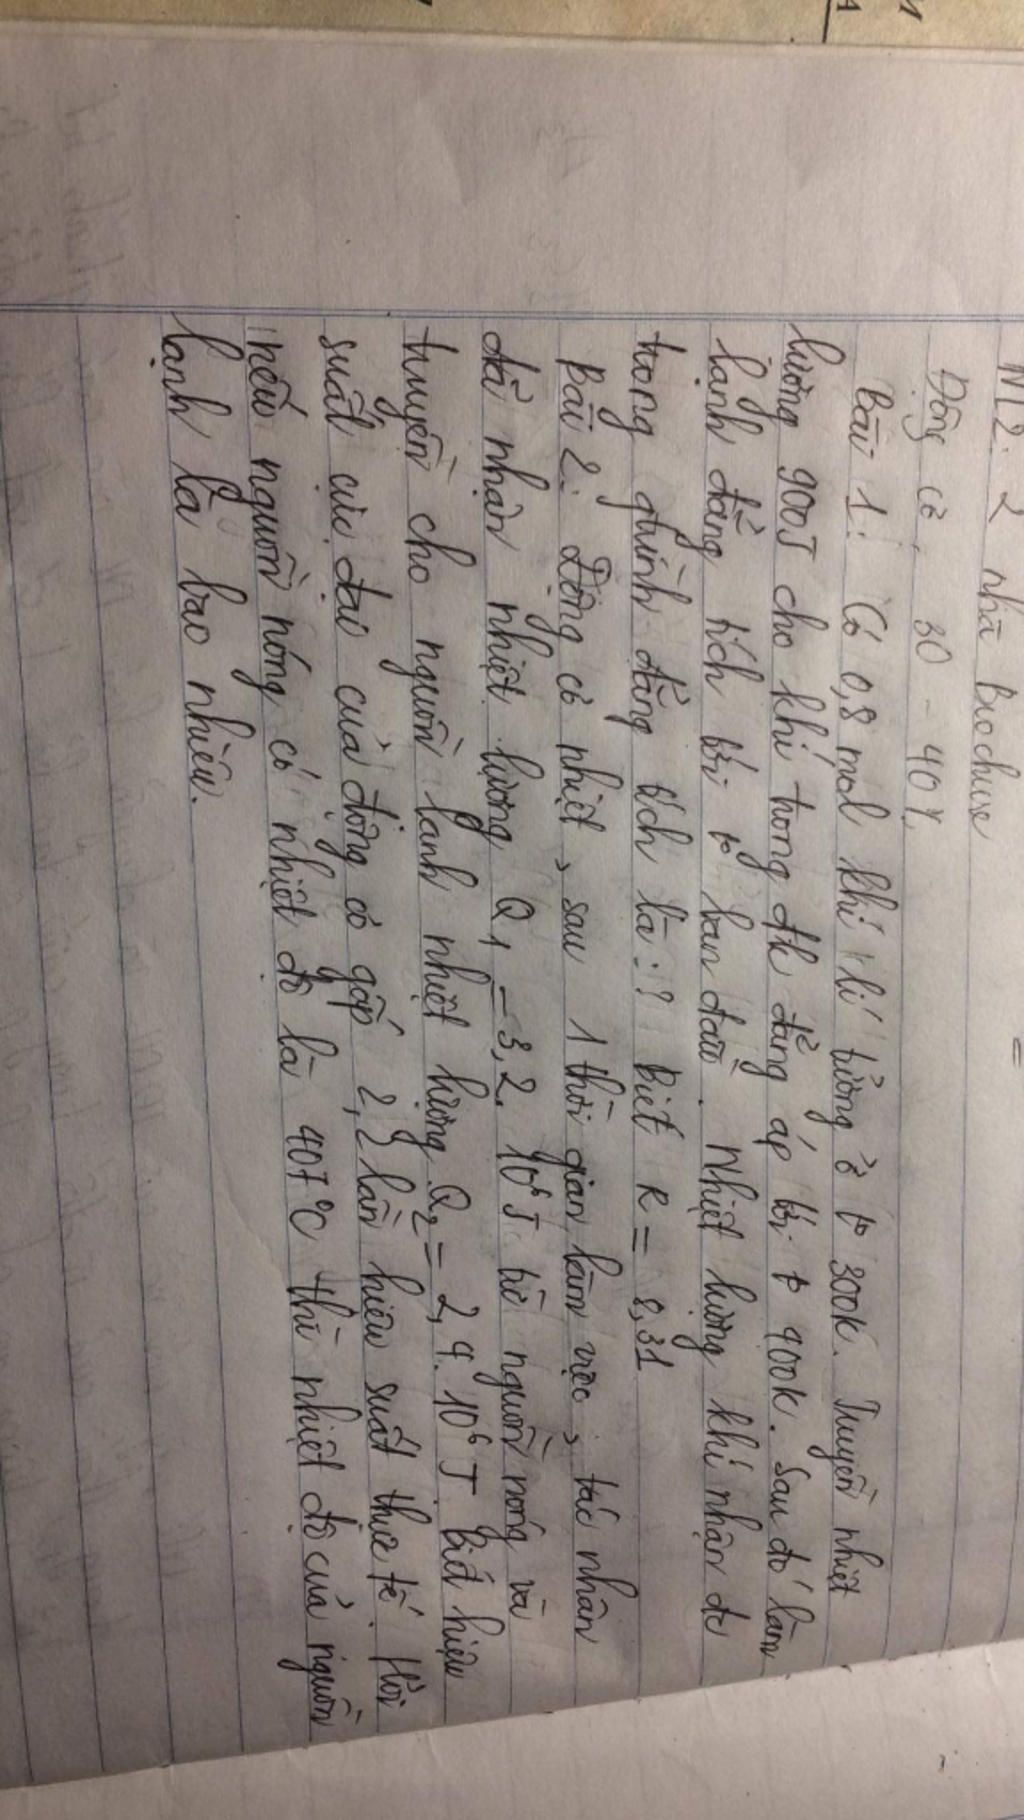 NL2: 2 nhà Buochure
Động cơ, 30 - 40%
Bài 1: Có 0,8 mol khí lí tưởng ở t° 300K. Truyền nhiệt
lượng 900J cho khí trong đk đẳng áp tới t° 400K. Sau đó làm
lạnh đẳng tích tới t° ban đầu. Nhiệt lượng khí nhận đc
trong quá trình đẳng tích là: ? Biết R = 8,31
Bài 2: Động cơ nhiệt, sau 1 thời gian làm việc, tác nhân
đã nhận nhiệt lượng Q1 = 3,2. 10⁶ J từ nguồn nóng và
truyền cho nguồn lạnh nhiệt lượng Q2 = 2,4. 10⁶ J Biết hiệu
suất cực đại của động cơ gấp 2,2 lần hiệu suất thực tế. Hỏi
nếu nguồn nóng có nhiệt độ là 407°C thì nhiệt độ của nguồn
lạnh là bao nhiêu.